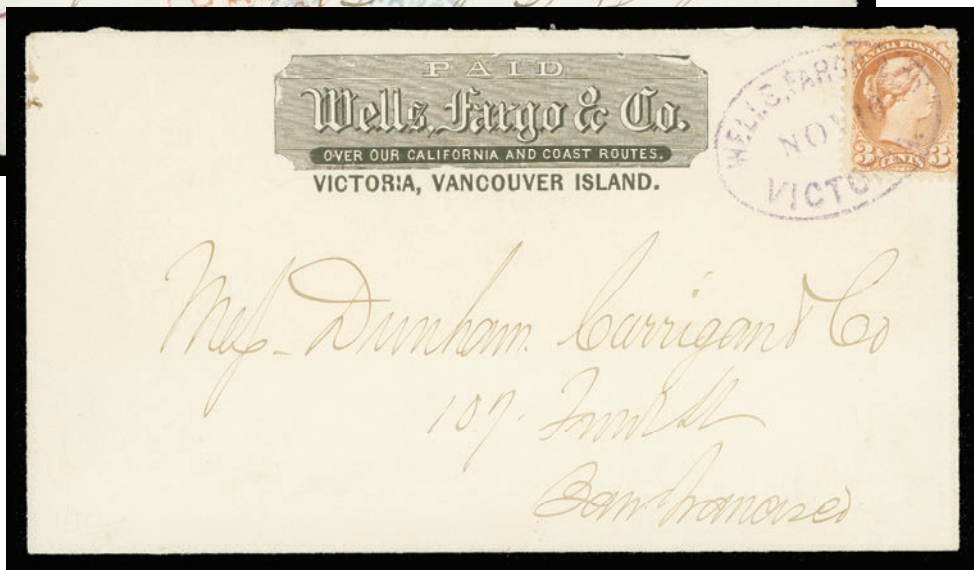 PAID
Wells, Fargo & Co.
OVER OUR CALIFORNIA AND COAST ROUTES.
VICTORIA, VANCOUVER ISLAND.
WELLS, FARGO
NOV 10
VICTO
CANADA POSTAGE
3 CENTS 3
Mess Dunham. Carrigan & Co
107. Front St
San Francisco